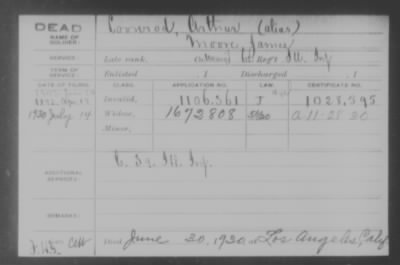 DEAD
NAME OF SOLDIER: Coonrod, Arthur (alias)
Moore, James
SERVICE: Late rank, Reg't Ill. Inf.
TERM OF SERVICE: Enlisted , 1 Discharged , 1
DATE OF FILING. CLASS. APPLICATION NO. LAW. CERTIFICATE NO.
Invalid, 1106,561 J 1028,595
1930 July 14 Widow, 1672808 A-11-28-30
Minor,
ADDITIONAL SERVICES: Ill. Inf.
REMARKS:
Died June 30, 1930 at Los Angeles, Calif.